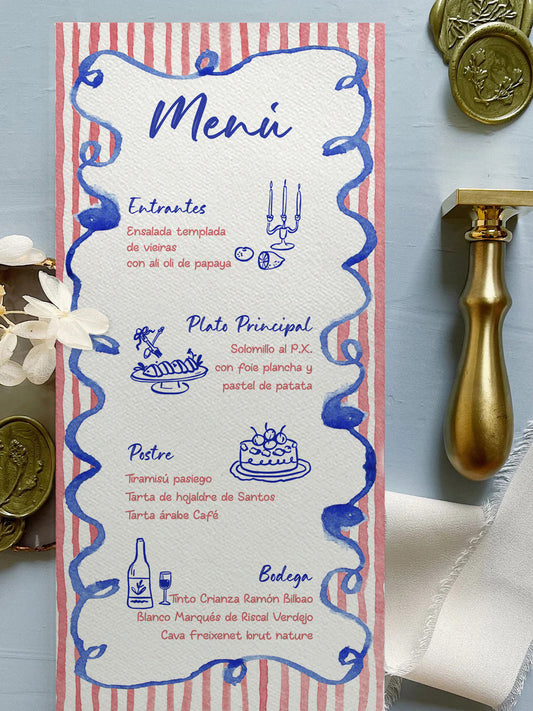 Menú
Entrantes
Ensalada templada
de vieiras
con ali oli de papaya
Plato Principal
Solomillo al P.X.
con foie plancha y
pastel de patata
Postre
Tiramisú pasiego
Tarta de hojaldre de Santos
Tarta árabe Café
Bodega
Tinto Crianza Ramón Bilbao
Blanco Marqués de Riscal Verdejo
Cava Freixenet brut nature